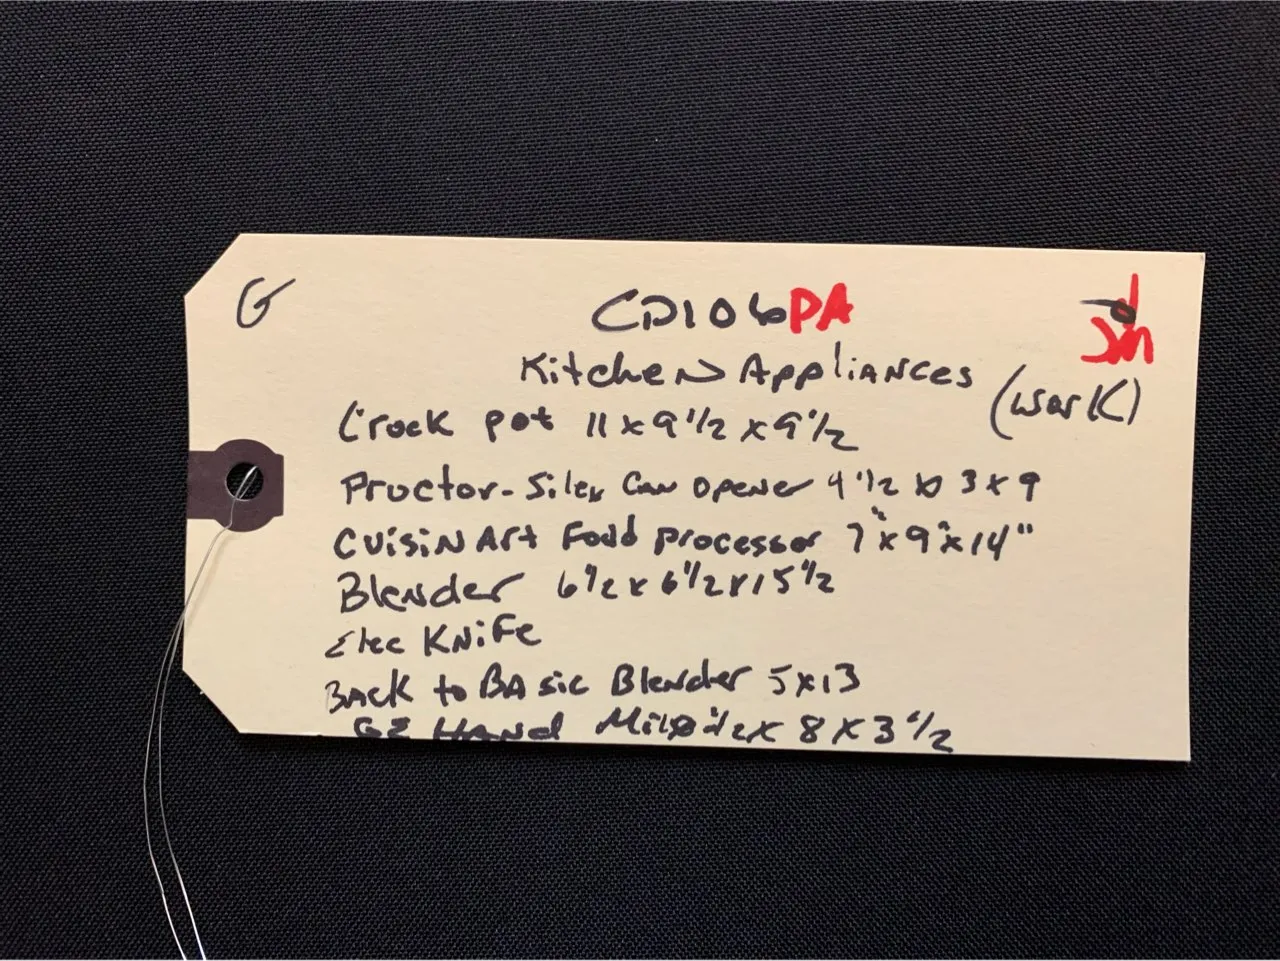 G
CD106PA
Kitchen Appliances (work)
Crock pot 11 x 9 1/2 x 9 1/2
Proctor-Silex Can opener 4 1/2 x 3 x 9
CUisiNArt Food processor 7" x 9" x 14"
Blender 6 1/2 x 6 1/2 x 15 1/2
Elec KNiFe
BACK to BAsic Blender 5 x 13
GE HaNd 1/2 x 8 x 3 1/2